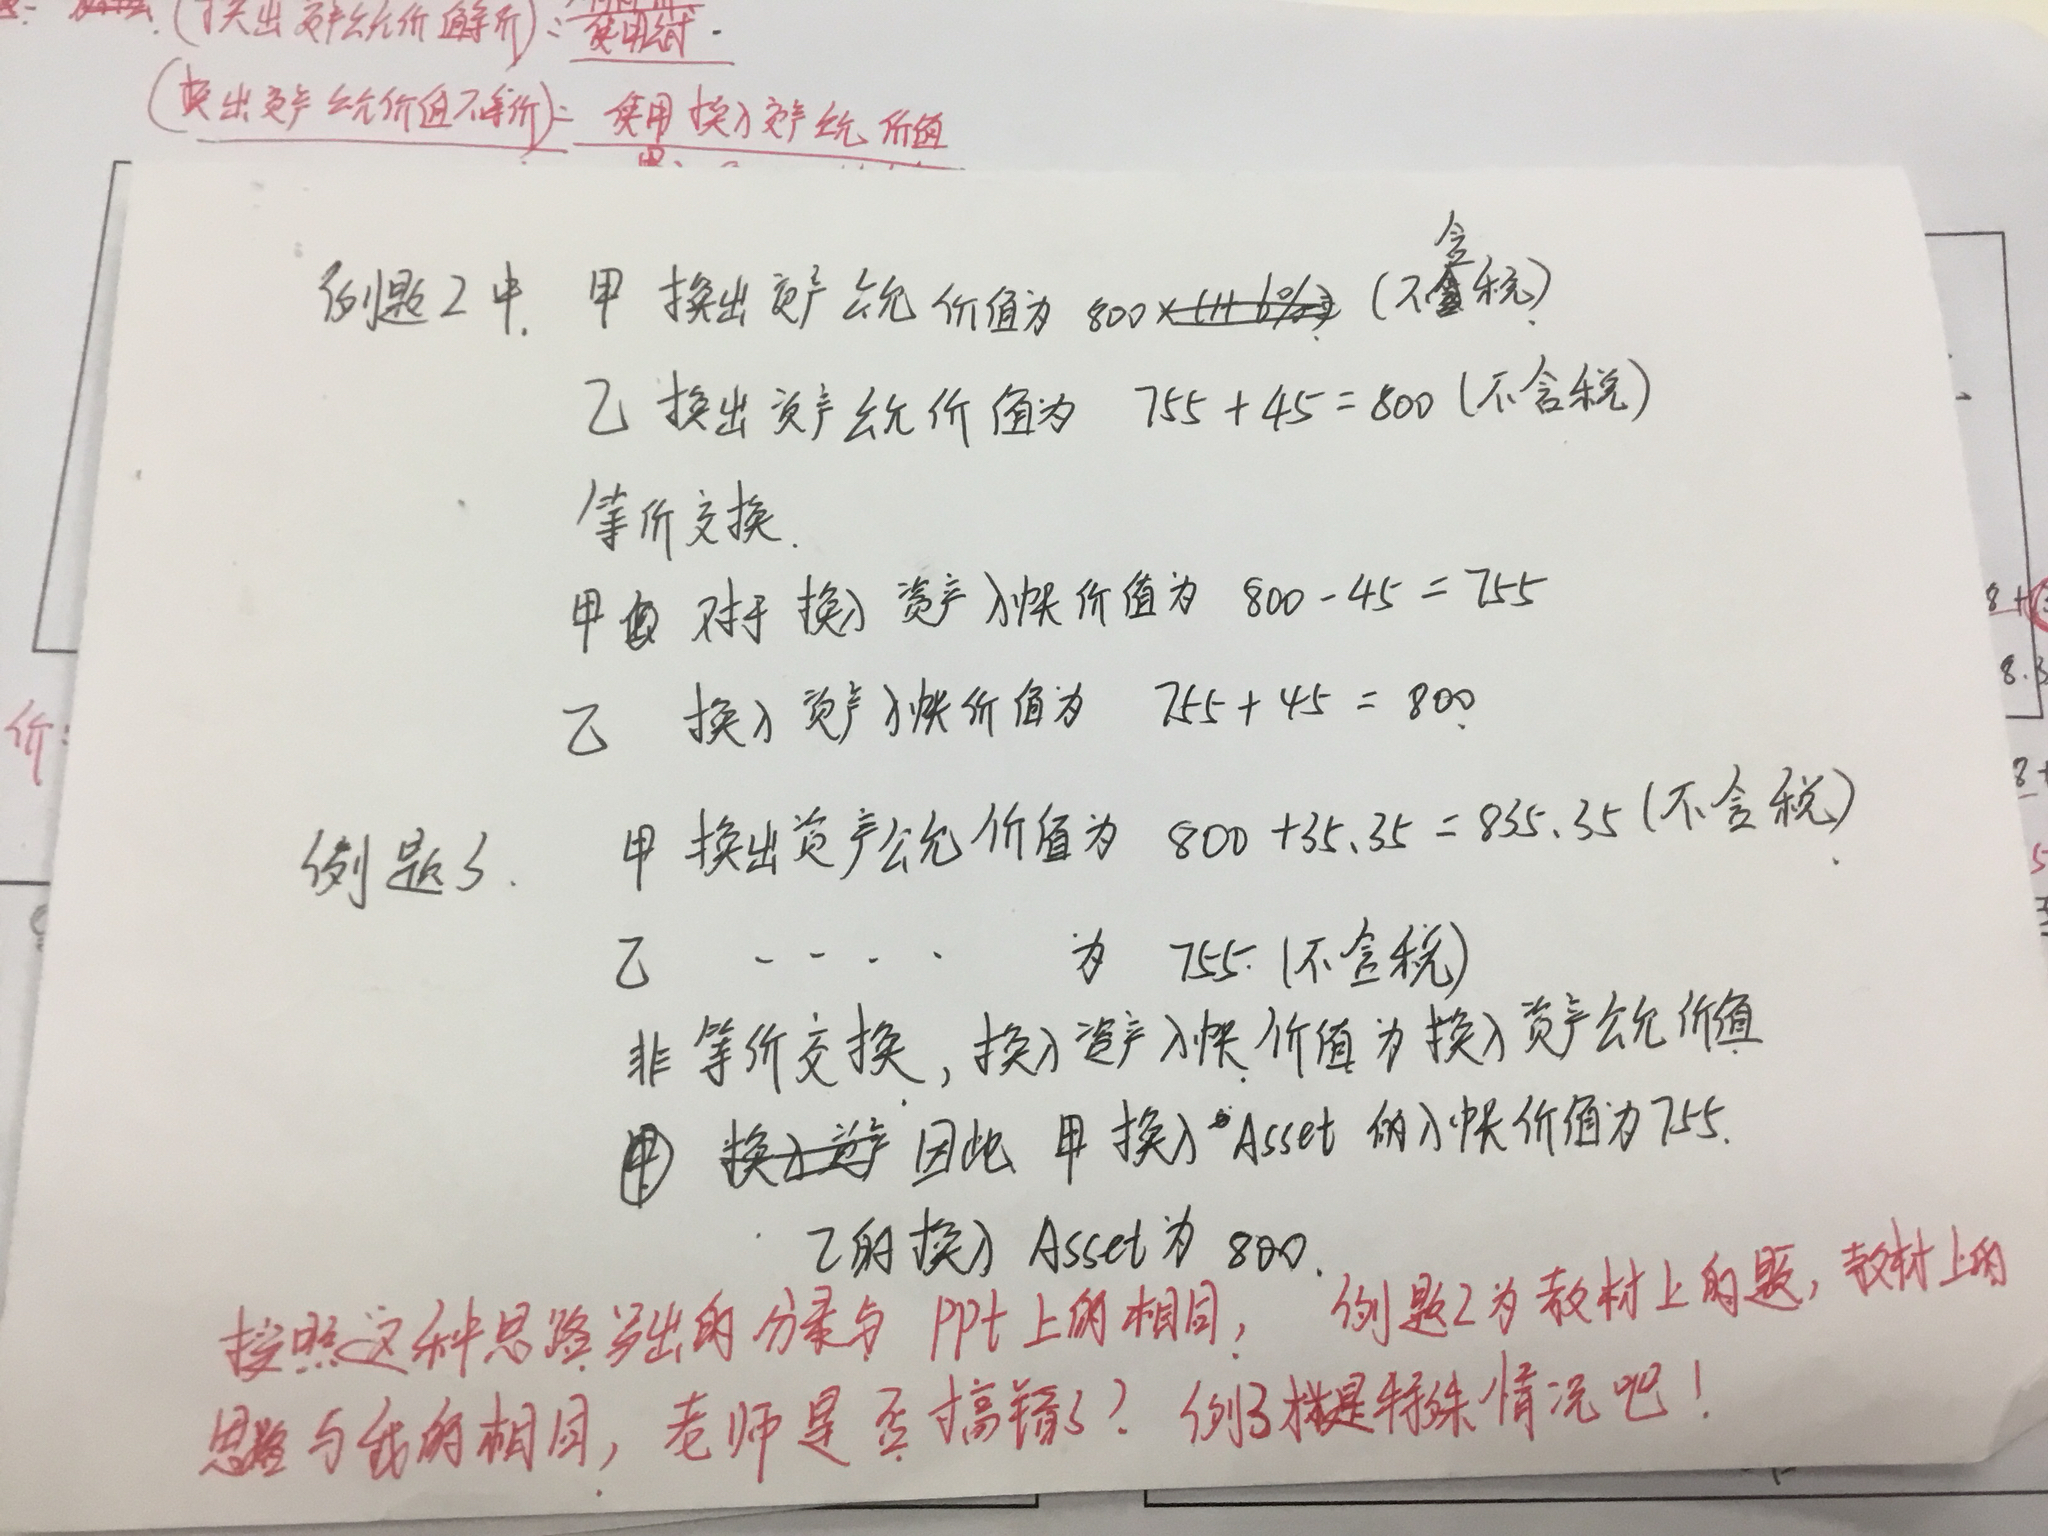 (换出资产公允价值等价):使用公式.
(换出资产公允价值不等价)= 使用换入资产公允价值
例题2中. 甲 换出资产公允价值为 800 (不含税)
乙 换出资产公允价值为 755+45=800 (不含税)
等价交换.
甲 对于换入资产入帐价值为 800-45=755
乙 换入资产入帐价值为 755+45=800.
例题3. 甲换出资产公允价值为 800+35.35=835.35 (不含税).
乙 ---- 为 755. (不含税)
非等价交换, 换入资产入帐价值为换入资产公允价值
因此 甲换入Asset的入帐价值为755.
乙的换入 Asset为 800.
按照这种思路写出的分录与PPt上的相同, 例题2为教材上的题, 教材上的
思路与我的相同, 老师是否搞错了? 例3才是特殊情况吧!
价: